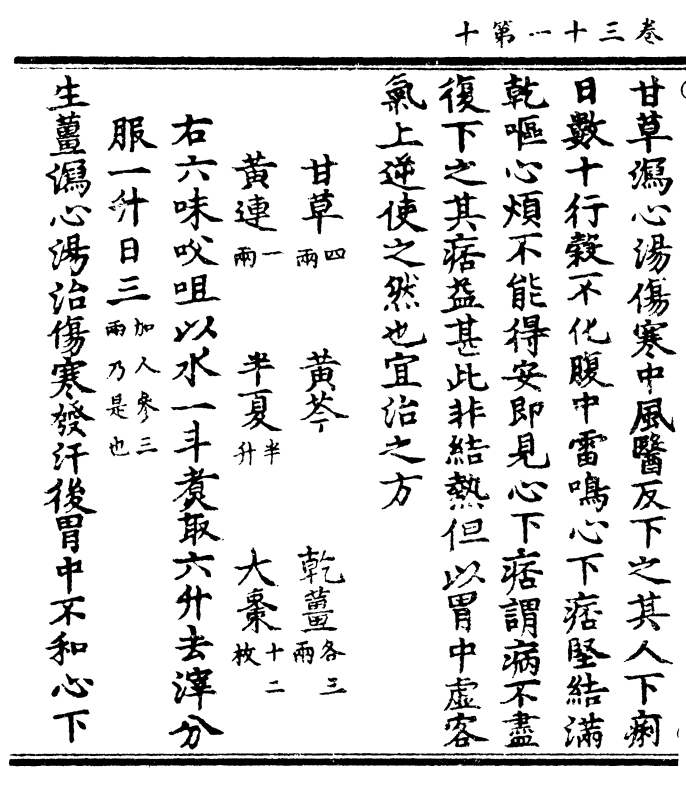 卷三十一第十
甘草瀉心湯傷寒中風醫反下之其人下痢
日數十行穀不化腹中雷鳴心下痞堅結滿
乾嘔心煩不能得安即見心下痞謂病不盡
復下之其痞益甚此非結熱但以胃中虛客
氣上逆使之然也宜治之方
甘草四兩 黃芩 乾薑各三兩
黃連一兩 半夏半升 大棗十二枚
右六味㕮咀以水一斗煑取六升去滓分
服一升日三加人參三兩乃是也
生薑瀉心湯治傷寒發汗後胃中不和心下